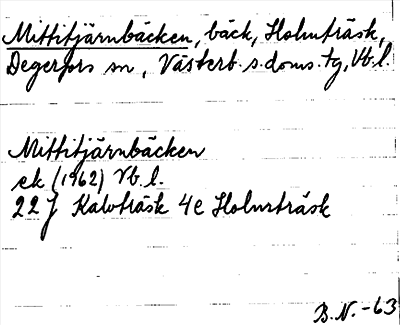 Mittitjärnbäcken, bäck, Holmträsk,
Degerfors sn, Västerb. s. doms. tg, Vb. l.
Mittitjärnbäcken
ek (1962) Vb. l.
22 J Kalvträsk 4e Holmträsk
B.N. -63